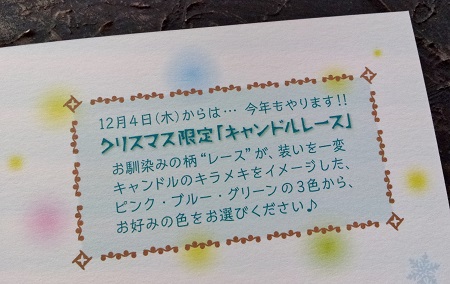 12月4日(木)からは… 今年もやります!!
クリスマス限定「キャンドルレース」
お馴染みの柄“レース”が、装いを一変
キャンドルのキラメキをイメージした、
ピンク・ブルー・グリーンの3色から、
お好みの色をお選びください♪